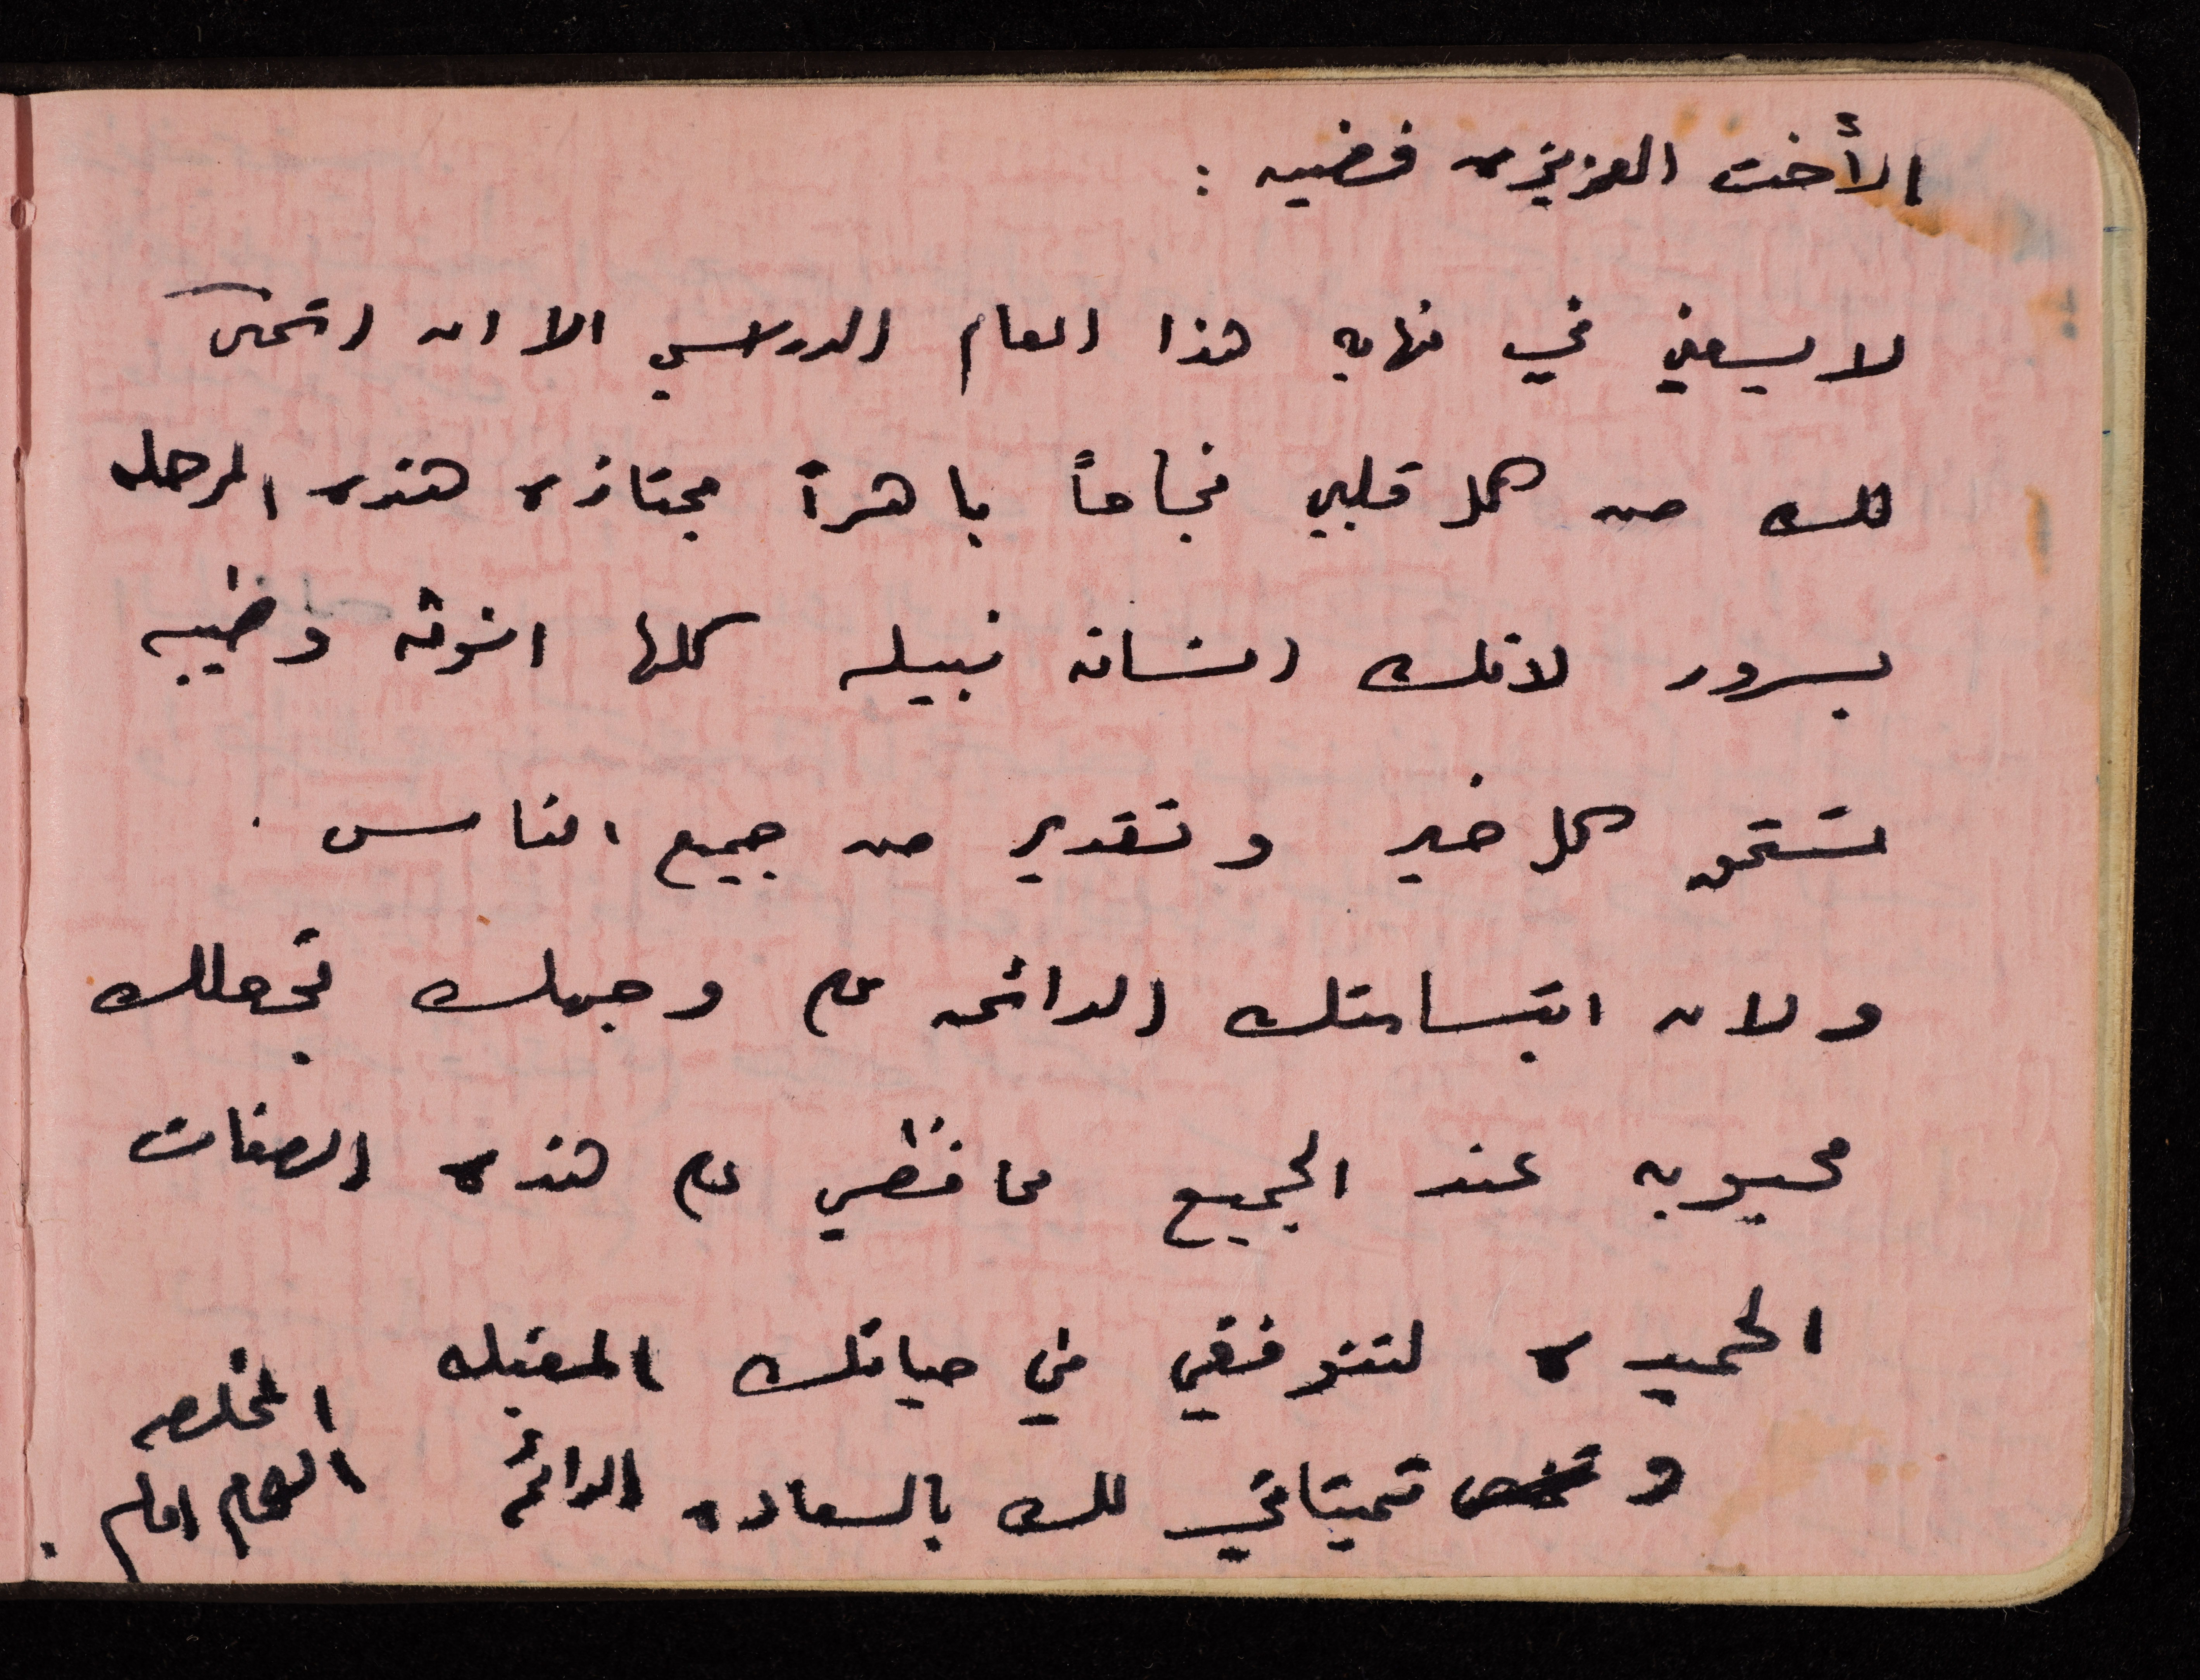 الأخت العزيزه فضيه :
لا يسعني في نهايه هذا العام الدراسي الا ان اتمنى
لك من كل قلبي نجاحاً باهراً مجتازه هذه المرحله
بسرور لانك انسانه نبيله كلها انوثه وطيبه
تستحق كل خير وتقدير من جميع الناس .
ولان ابتسامتك الدائمه على وجهك تجعلك
محبوبه عند الجميع حافظي على هذه الصفات
الحميده لتتوفقي في حياتك المقبله
و تمنياتي لك بالسعاده الدائمه
المخلصه
الهام امام .